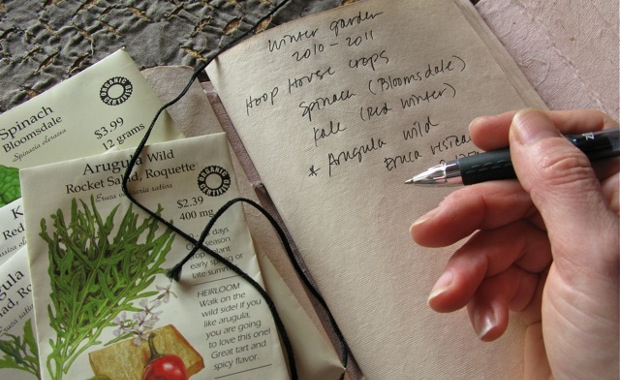 Spinach
Bloomsdale
Spinacia oleracea
$3.99
12 grams
ORGANIC
CERTIFIED
K
Red
Arugula
Rocket Salad
Arugula Wild
Rocket Salad, Roquette
Eruca sativa
ORGANIC
CERTIFIED
$2.39
400 mg
days
season
plant
early spring or
late summer
HEIRLOOM
Walk on the
wild side! If you
like arugula,
you are going
to love this one!
Great tart and
spicy flavor.
Winter garden
2010 - 2011
Hoop House crops
Spinach (Bloomsdale)
Kale (Red Winter)
* Arugula wild
Eruca